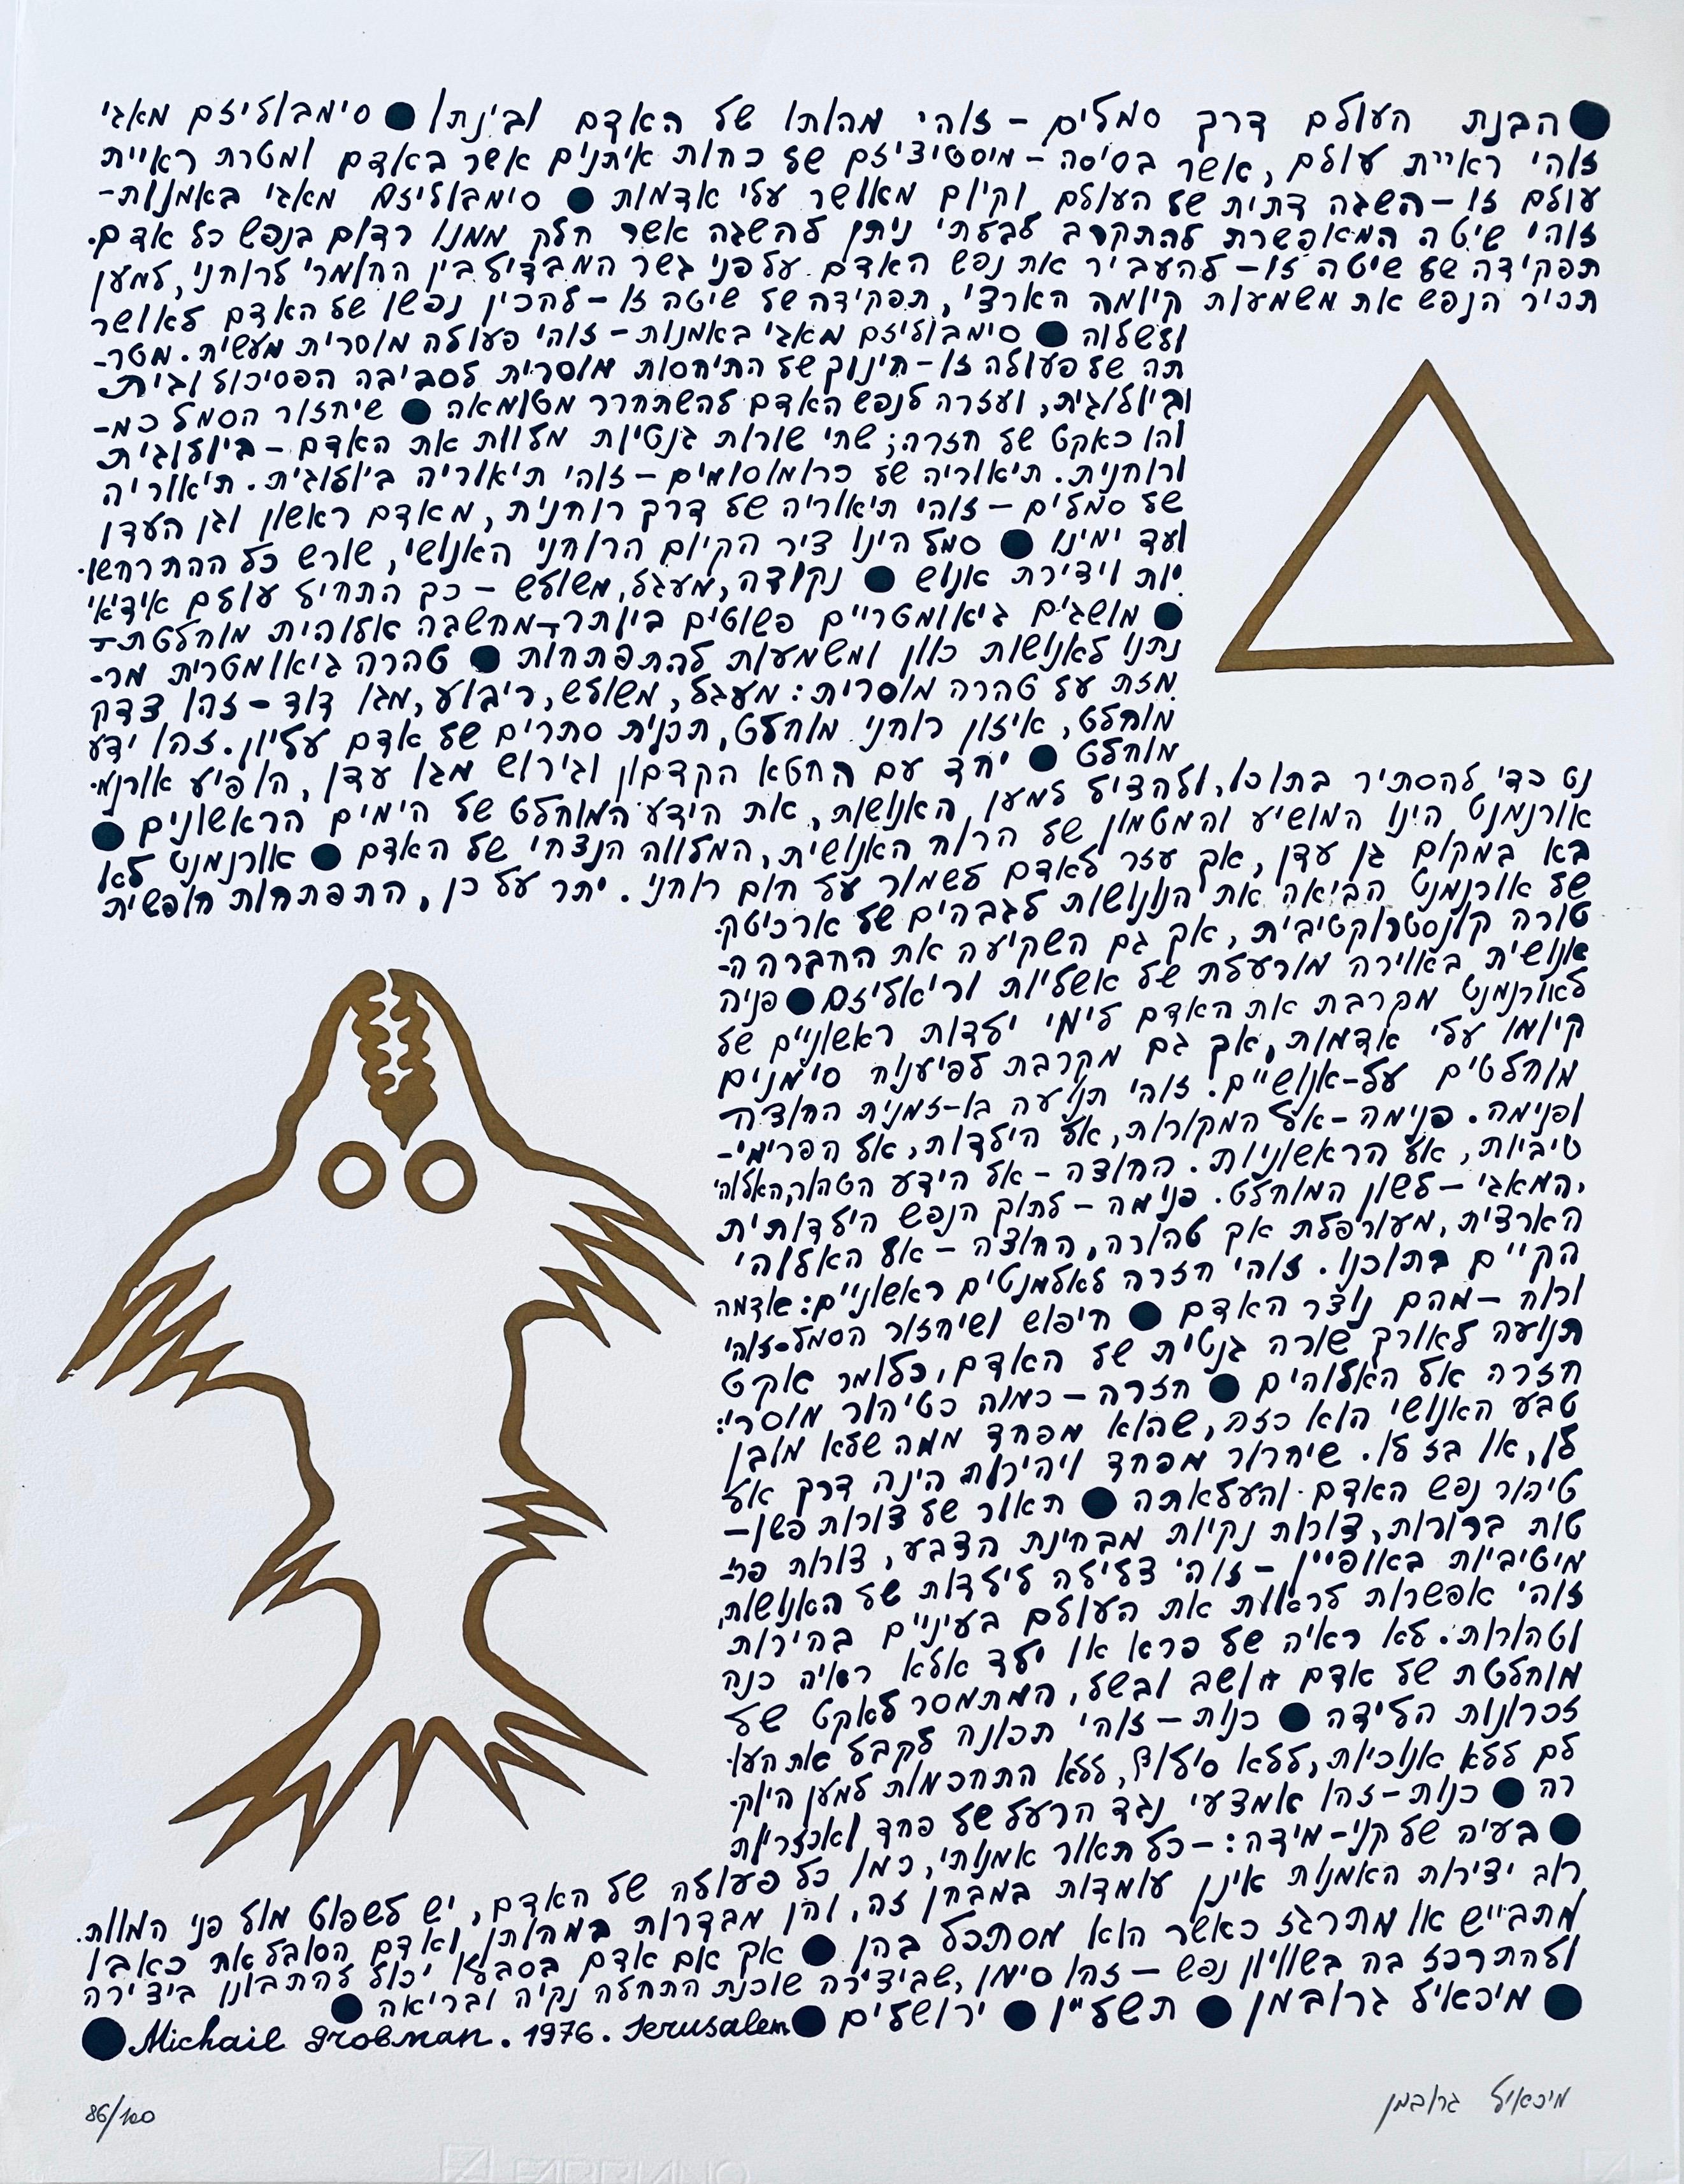 ● הבנת העולם דרך סמלים – זוהי מהותו של האדם ובינתו ● סימבוליזם מאגי
זוהי ראיית עולם, אשר בסיסה – מיסטיציזם של כחות איתנים אשר באדם ומטרת ראיית
עולם זו – השגה דתית של העולם וקיום מאושר עלי אדמות ● סימבוליזם מאגי באמנות –
זוהי שיטה המאפשרת להתקרב לבלתי ניתן להשגה אשר חלק ממנו רדום בנפש כל אדם.
תפקידה של שיטה זו – להעביר את נפש האדם על פני גשר המבדיל בין החומרי לרוחני, למען
תכיר הנפש את משמעות קיומה הארצי, תפקידה של שיטה זו – להכין נפשו של האדם לאושר
ולשלוה ● סימבוליזם מאגי באמנות – זוהי פעולה מוסרית מעשית. מטר-
תה של פעולה זו – חינוך של התיחסות מוסרית לסביבה הפסיכולוגית
וביולוגית, ועזרה לנפש האדם להשתחרר מטומאה ● שיחזור הסמל כמ-
והו כאקט של חזרה; שתי שורות גנטיות מלוות את האדם – ביולוגית
ורוחנית. תיאוריה של כרומוסומים – זוהי תיאוריה ביולוגית. תיאוריה
של סמלים – זוהי תיאוריה של דרך רוחנית, מאדם ראשון וגן העדן
ועד ימינו ● סמל הינו ציר הקיום הרוחני האנושי, שורש כל ההתרחשו-
יות ויצירת אנוש ● נקודה, מעגל, משולש – כך התחיל עולם אידיאי
● מושגים גיאומטריים פשוטים ביותר – מחשבה אלוהית מוחלטת –
נתנו לאנושות כוון ומשמעות להתפתחות ● טהרה גיאומטרית מר-
מזת על טהרה מוסרית: מעגל, משולש, ריבוע, מגן דוד – זהו צדק
מוחלט, איזון רוחני מוחלט, תכנית סתרים של אדם עליון. זהו ידע
מוחלט ● יחד עם החטא הקדמון וגירוש מגן עדן, הופיע אורנמ-
נט כדי להסתיר בתוכו, ולהציל למען האנושות, את הידע המוחלט של הימים הראשונים ●
אורנמנט הינו המושיע והמטמון של הרוח האנושית, המלווה הנצחי של האדם ● אורנמנט לא
בא במקום גן עדן, אך עזר לאדם לשמור על חום רוחני. יתר על כן, התפתחות חופשית
של אורנמנט הביאה את האנושות לגבהים של ארכיטק-
טורה קונסטרוקטיבית, אך גם השקיעה את החברה ה-
אנושית באוירה מורעלת של אשליות וריאליזם ● פניה
לאורנמנט מקרבת את האדם לימי ילדות ראשוניים של
קיומו עלי אדמות, אך גם מקרבת לפיענוח סימנים
מוחלטים על-אנושיים. זוהי תנועה בו-זמנית החוצה
ופנימה. פנימה – אל המקורות, אל הילדות, אל הפרימי-
טיביות, אל הראשוניות. החוצה – אל הידע הטהור, האלוהי
המאגי – לשון המוחלט. פנימה – לתוך הנפש הילדותית
הארצית, מעורפלת אך טהורה, החוצה – אל האלוהי
הקיים בתוכנו. זוהי חזרה לאלמנטים ראשוניים: אדמה
ורוח – מהם נוצר האדם ● חיפוש ושיחזור הסמל – זוהי
תנועה לאורך שורה גנטית של האדם, כלומר אקט
חזרה אל האלוהים ● חזרה – כמוה כטיהור מוסרי:
טבע האנושי הוא כזה, שהוא מפחד ממה שלא מובן
לו, או בז לו. שיחרור מפחד ויהירות הינה דרך אל
טיהור נפש האדם והעלאתה ● תאור של צורות פשו-
טות ברורות, צורות נקיות מבחינת הצבע, צורות פרי-
מיטיביות באופיין – זוהי צלילה לילדות של האנושות,
זוהי אפשרות לראות את העולם בעיניים בהירות
וטהורות. לא ראיה של פרא או ילד אלא ראיה כנה
מוחלטת של אדם חושב ובשל, המתמסר לאקט של
זכרונות הלידה ● כנות – זוהי תכונה לקבל את העו-
לם ללא אנוכיות, ללא סילוף, ללא התחכמות למען היוק-
רה ● כנות – זהו אמצעי נגד הרעל של פחד ואכזריות
● בעיה של קני-מידה: – כל תאור אמנותי, כמו כל פעולה של האדם, יש לשפוט מול פני המוות.
רוב יצירות האמנות אינן עומדות במבחן זה, והן מבדרות במהותן ואדם הסובל את כאבו
מתבייש או מתרגז כאשר הוא מסתכל בהן ● אך אם אדם בסבלו יכול להתבונן ביצירה
ולהתרכז בה בשוויון נפש – זהו סימן, שביצירה שוכנת התחלה נקיה ובריאה ●
● מיכאיל גרובמן ● תשל״ו ● ירושלים ● Michail Grobman. 1976. Jerusalem ●
86/100
מיכאיל גרובמן
FABRIANO